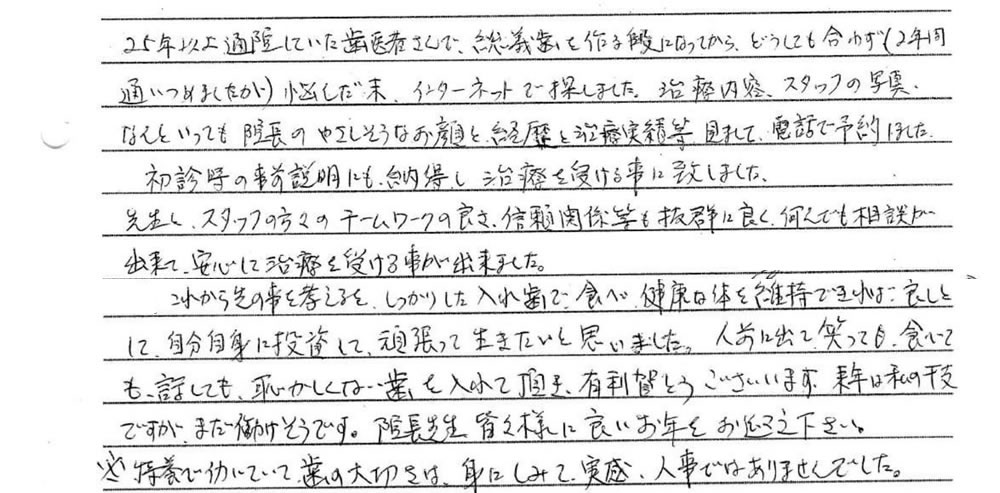 25年以上通院していた歯医者さんで、総義歯を作る段になってから、どうしても合わず(2年間
通いつめましたが)悩んだ末、インターネットで探しました。治療内容、スタッフの写真、
なんといっても院長のやさしそうなお顔と、経歴と治療実績等 見まして、電話で予約しました。
初診時の事前説明にも、納得し 治療を受ける事に致しました。
先生と、スタッフの方々のチームワークの良さ、信頼関係等も抜群に良く、何んでも相談が
出来て、安心して治療を受ける事が出来ました。
これから先の事を考えると、しっかりした入れ歯で、食べ、健康な体を維持できれば、良しと
して、自分自身に投資して、頑張って生きたいと思いました。人前に出て、笑っても、食べて
も、話しても、恥かしくない歯を入れて頂き、有利賀とうございいます。来年は私の干支
ですが、まだ働けそうです。院長先生、皆々様に良いお年をお迎え下さい。
特養で仂いていて、歯の大切さは、身にしみて、実感、人事ではありませんでした。